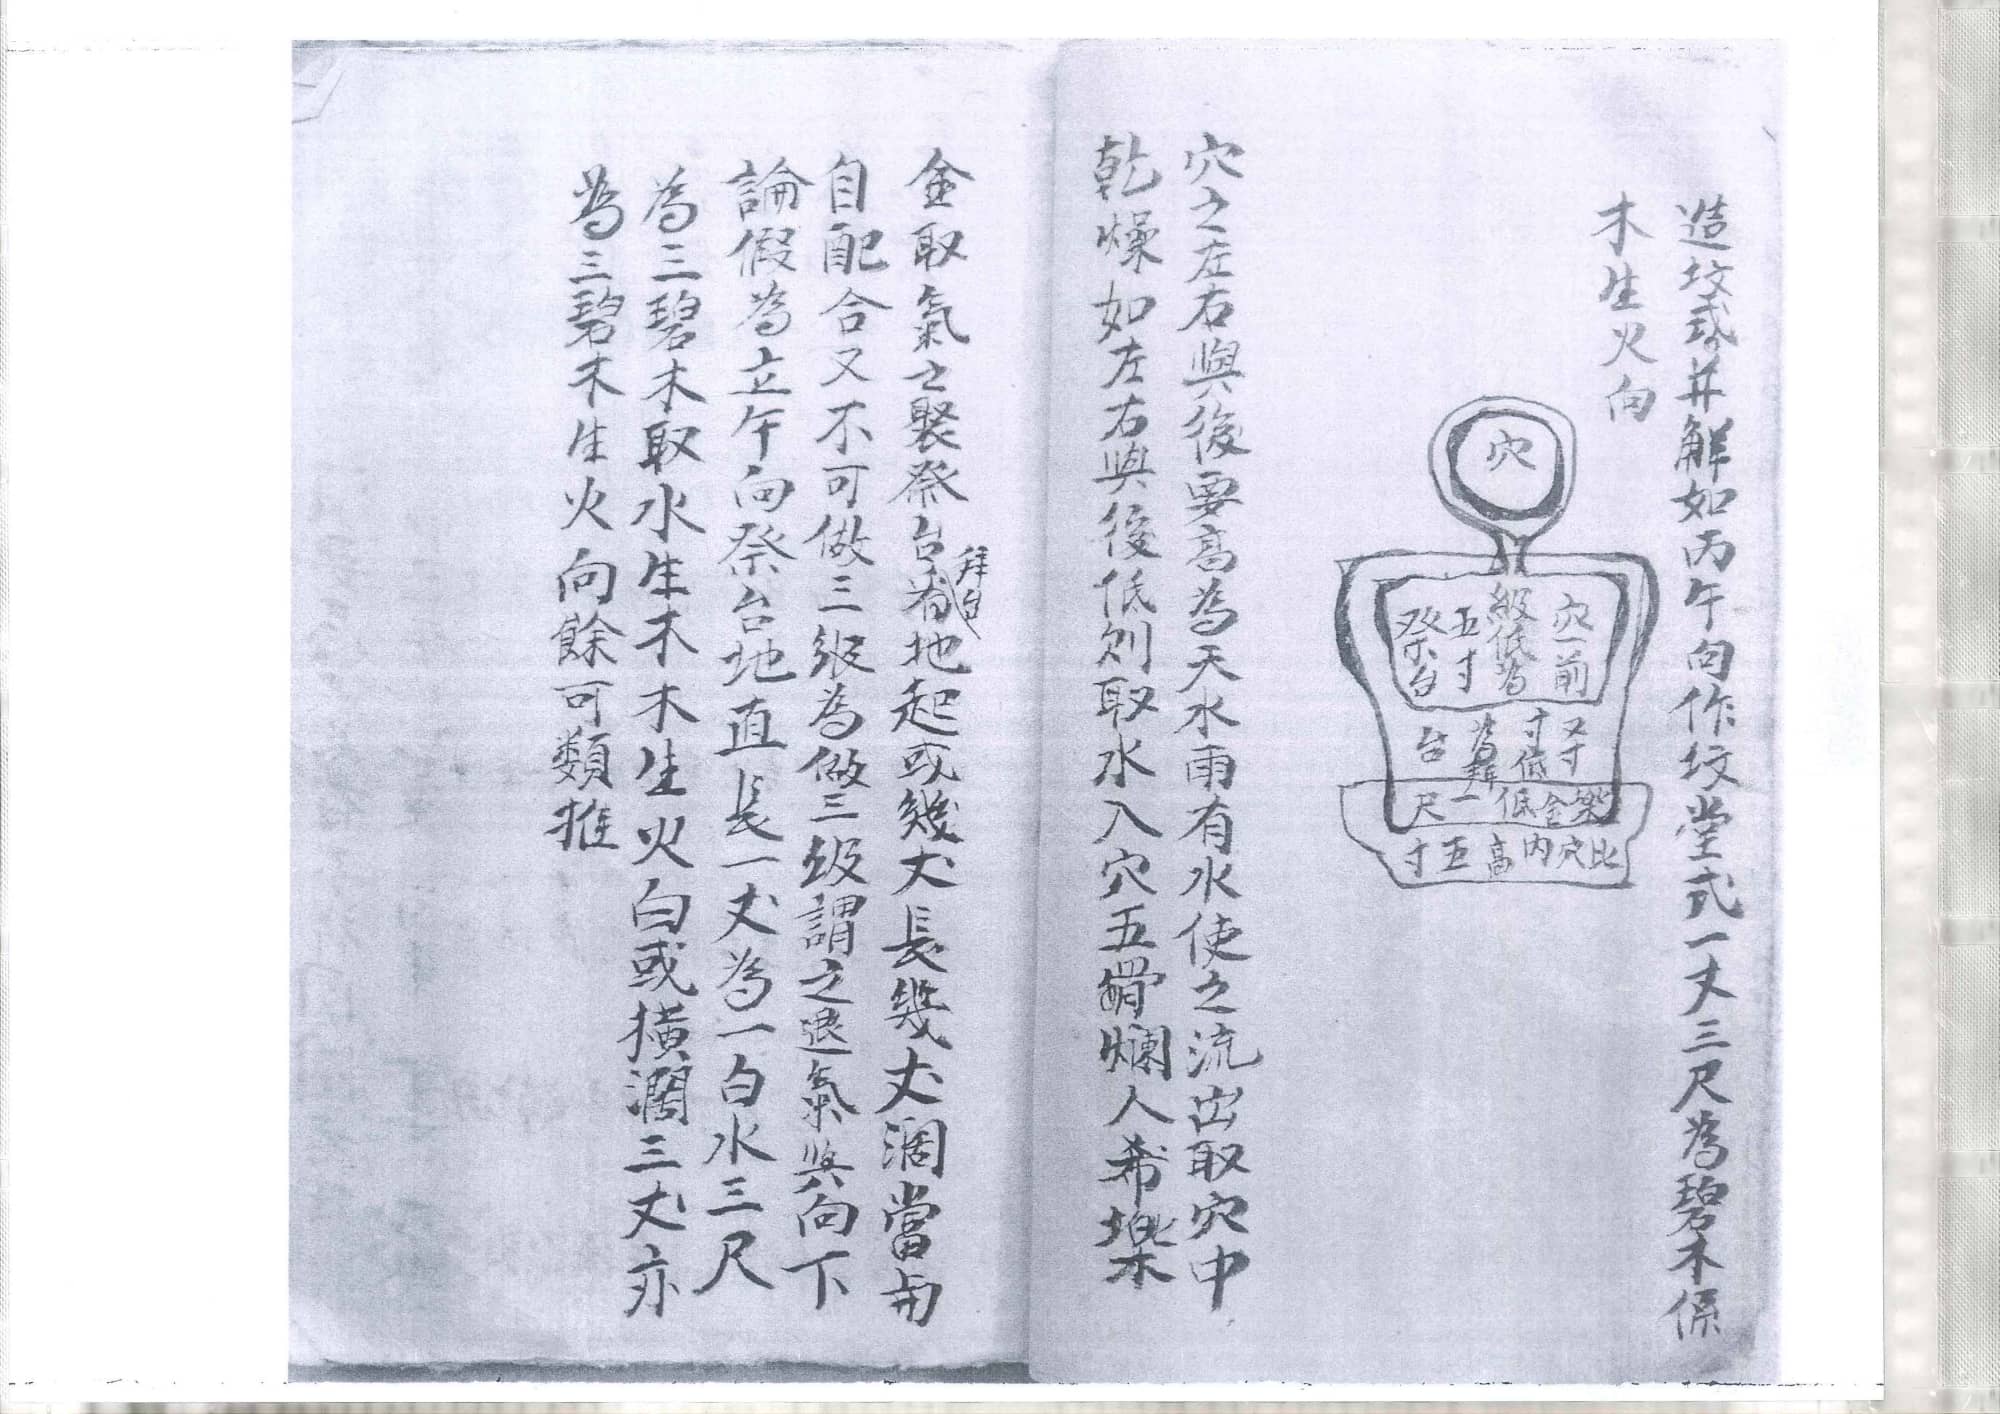 造坟式并解如丙午向作坟堂式一丈三尺為碧木係
木生火向
穴
穴前
級低為
五寸
祭台
又寸
寸低
為拜
台
樂金低一尺
比穴內高五寸
穴之左右與後要高為天水雨有水使之流出取穴中
乾燥如左右與後低則取水入穴五爛人希樂
金取氣之聚祭台有地起或幾丈長幾丈濶當与
拜台
自配合又不可做三級為做三级謂之退氣與向下
論假為立午向祭台地直長一丈為一白水三尺
為三碧木取水生木木生火白或橫濶三丈亦
為三碧木生火向餘可類推